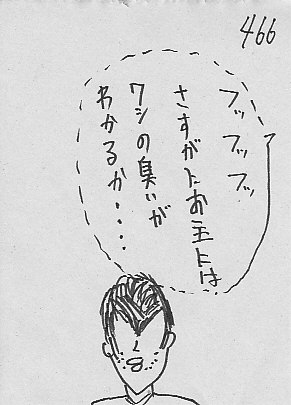 466
フッフッフッ
さすがにお主には
ワシの臭いが
わかるか・・・・